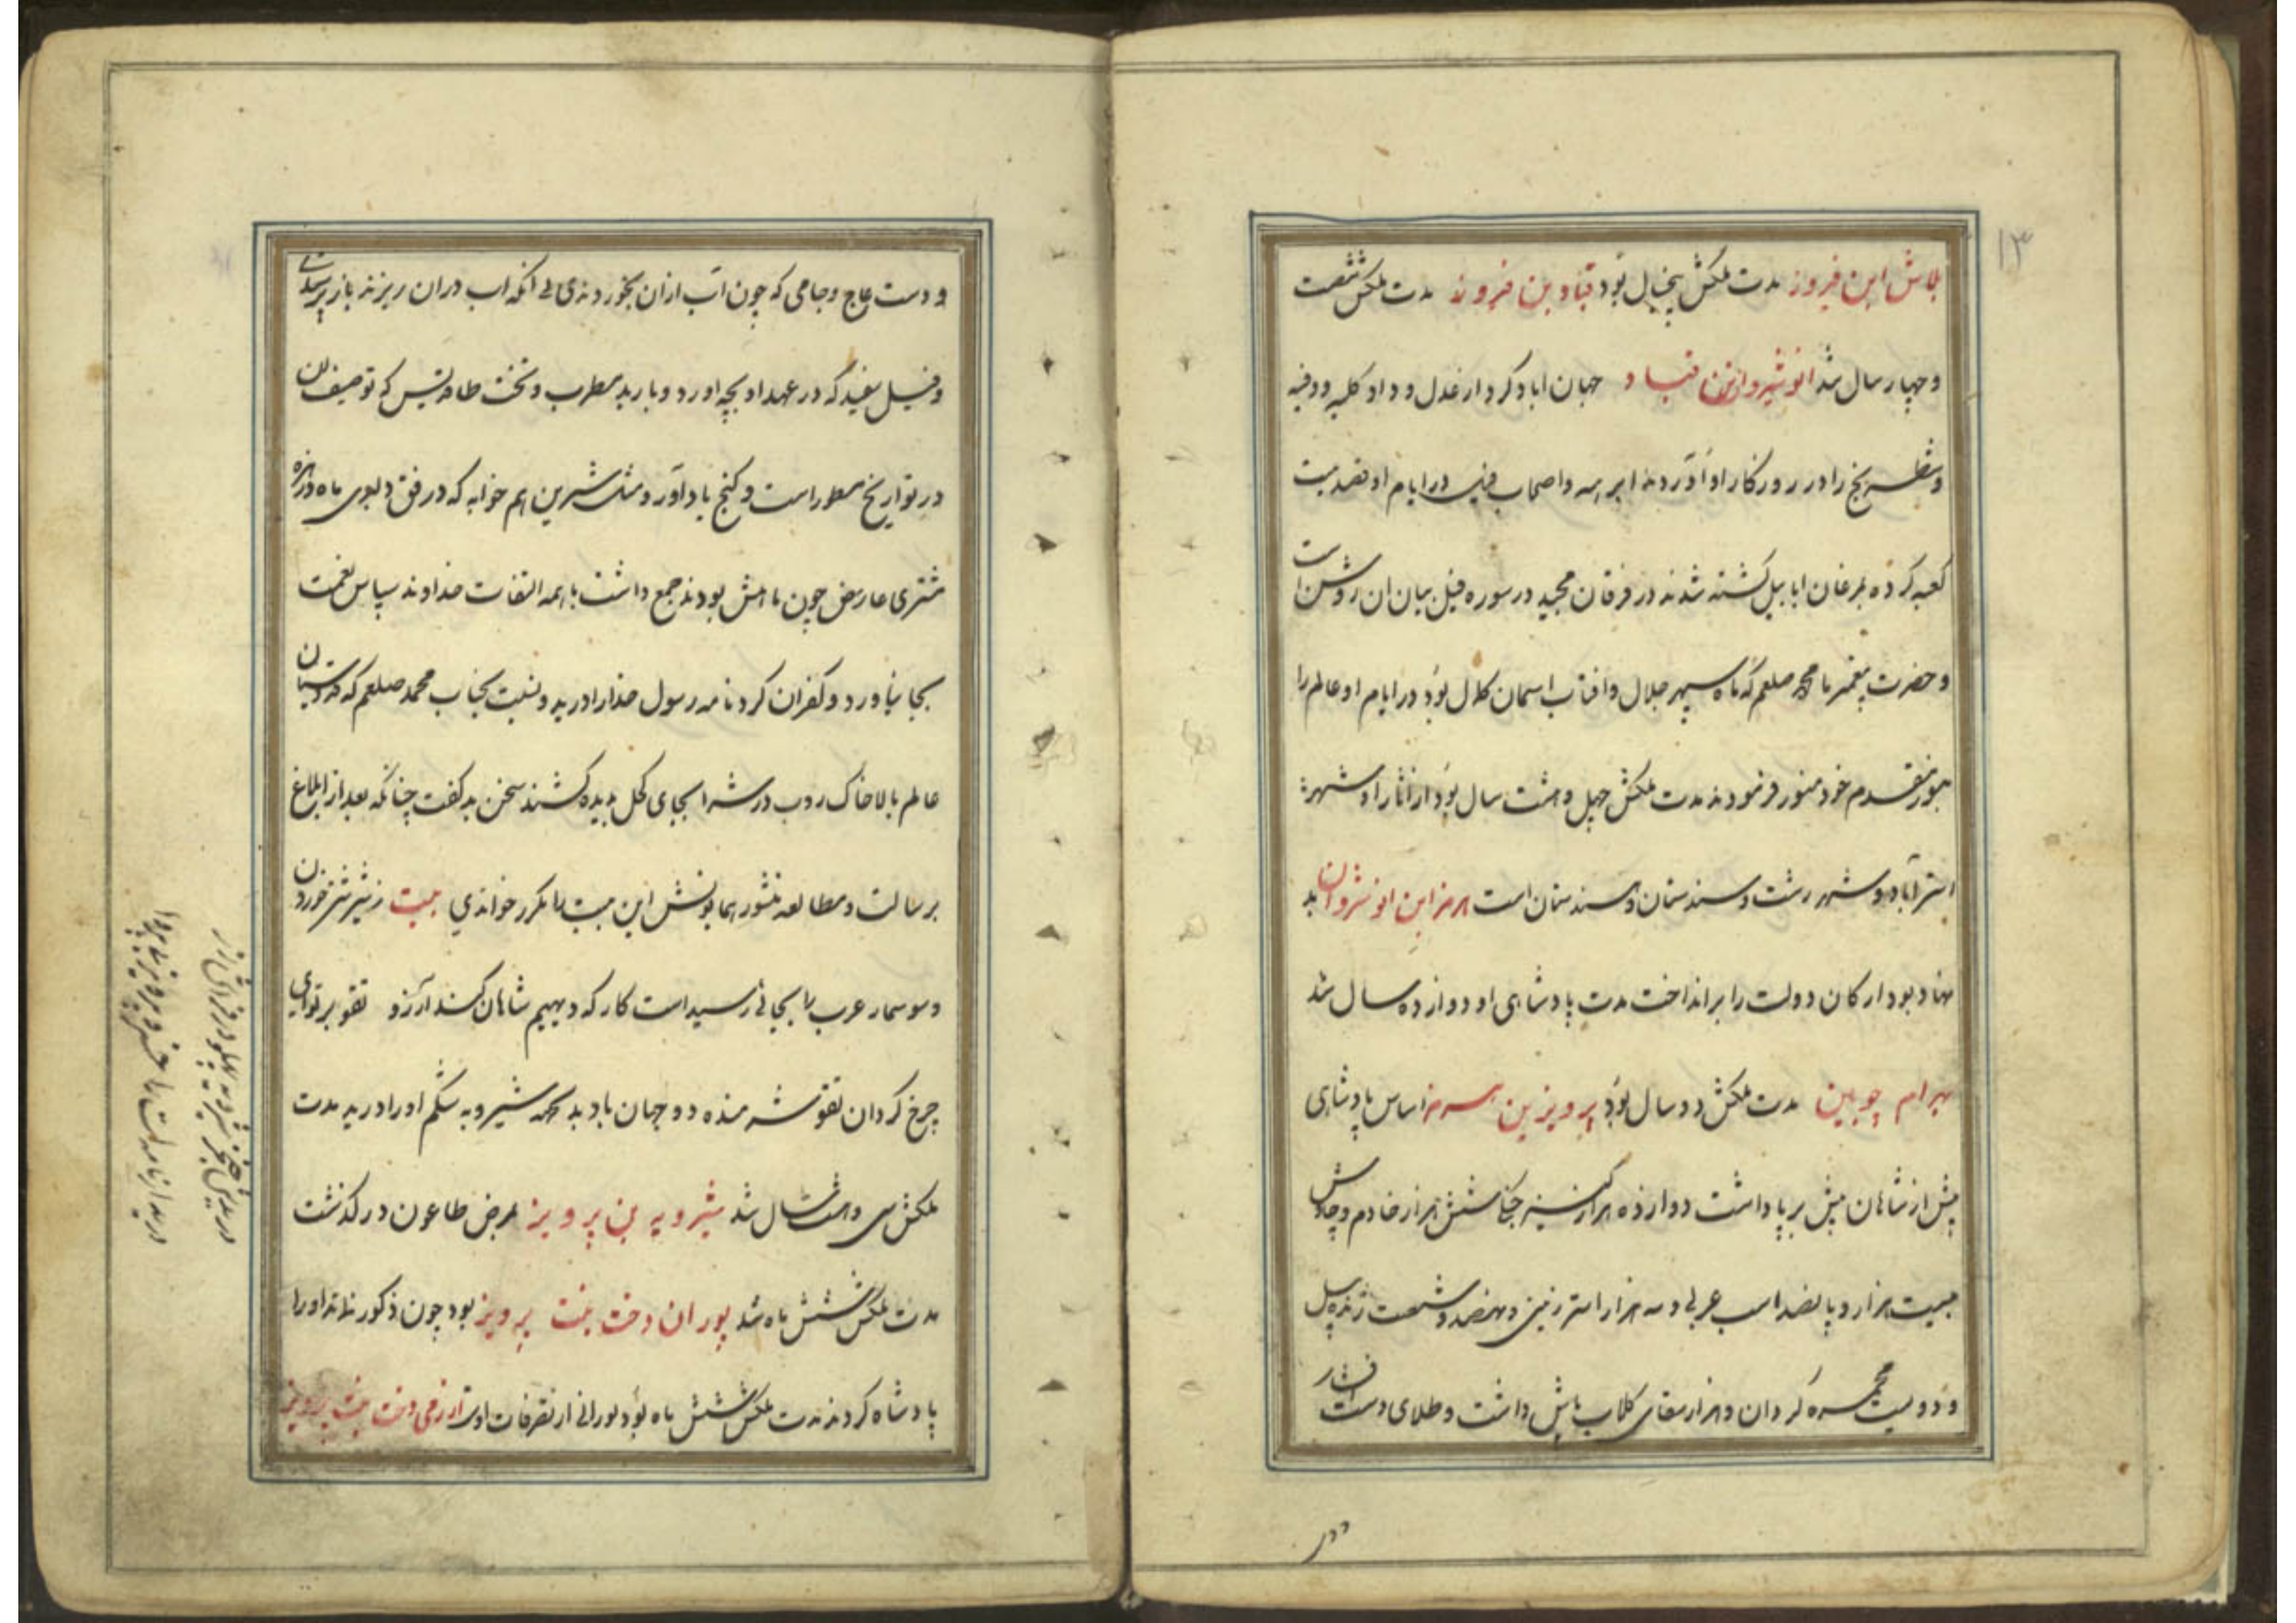 ۱۳
بلاش ابن فیروز مدت ملکش پنجسال بود قباد بن فیروز مدت ملکش شصت
و چهار سال شد انوشیروان بن قباد جهان اباد کرد از عدل و داد کلیه و دمنه
و شطرنج را در روزکار او آوردند ابرهه و اصحاب فیل در ایام او قصد بیت
کعبه کرده بمرغان ابابیل کشته شدند در فرقان مجید در سوره فیل بیان ان روشن است
و حضرت پیغمبر ما محمد صلعم که ماه سپهر جلال و افتاب اسمان کمال بود در ایام او عالم را
بنور مقدم خود منور فرمودند مدت ملکش چهل و هشت سال بود از اثار او شهر
استرآباد و شهر رشت و سندستان است هرمز ابن انوشروان بد
نهاد بود ارکان دولت را برانداخت مدت پادشاهی او دوازده سال شد
بهرام چوبین مدت ملکش دو سال بود پرویز بن هرمز اساس پادشاهی
پیش از شاهان پیش برپا داشت دوازده هزار کنیز شش هزار خادم و چاوش
بیست هزار و پانصد اسب عربی و سه هزار استر زینی و نهصد و شصت ژنده پیل
و دویست مجمره کردان و هزار سقای کلاب پاش داشت و طلای دست افشار
ودر
و دست عاج و جامی که چون آب ازان بخوردندی بی انکه اب دران ریزند باز پر شدی
و فیل سفید که در عهد او بچه اورد و باربد مطرب و تخت طاقدیس که توصیف ان
در تواریخ مسطور است و کنج باداور و مثل شیرین هم خوابه که در فن دلبری ماه
مشتری عارض چون ماهش بودند جمع داشت با همه التفات خداوند سپاس نعمت
بجا نیاورد و کفران کرد نامه رسول خدا را درید و نسبت بجناب محمد صلعم که قدوسیان
عالم بالا خاک روب درش را بجای کحل بدیده کشند سخن بد کفت چنانکه بعد از ابلاغ
برسالت و مطالعه منشور همایونش این بیت را مکرر خواندی بیت ز شیر شتر خوردن
و سوسمار عرب را بجائی رسید است کار که دیهیم شاهان کند آرزو تفو بر تو ای
چرخ کردان تفو شرمنده دو جهان باد بد شیرویه شکم او را درید مدت
ملکش سی و هشت سال شد شیرویه بن پرویز بمرض طاعون در کذشت
مدت ملکش شش ماه شد پوران دخت بنت پرویز بود چون ذکور نماند او را
پادشاه کردند مدت ملکش شش ماه بود بورانی از تصرفات اوست ارزمی دخت بنت پرویز